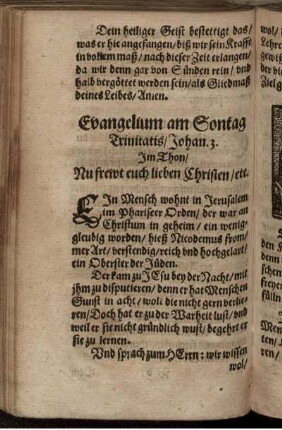 Dein heiliger Geist bestettigt das/
was er hie angefangen/ biß wir sein Krafft
in vollem maß/ nach dieser Zeit erlangen/
da wir denn gar von Sünden rein/ vnd
halb vergöttet werden sein/ als Gliedmaß
deines Leibes/ Amen.
Evangelium am Sontag
Trinitatis/ Johan. 3.
Im Thon/
Nu frewt euch lieben Christen/ etc.
EIn Mensch wohnt in Jerusalem
im Phariseer Orden/ der war an
Christum in geheim/ ein wenig
gleubig worden/ hieß Nicodemus from/
mer Art/ verstendig/ reich vnd hochgelart/
ein Oberster der Jüden.
Der kam zu JEsu bey der Nacht/ mit
jhm zu disputieren/ denn er hat Menschen
Gunst in acht/ wolt die nicht gern verlie-
ren/ Doch hat er zu der Warheit lust/ vnd
weil er sie nicht gründlich wust/ begehrt er
sie zu lernen.
Vnd sprach zum HErrn: wir wissen
wol/
wol/
Lehre
gewiß
der
Ziel g